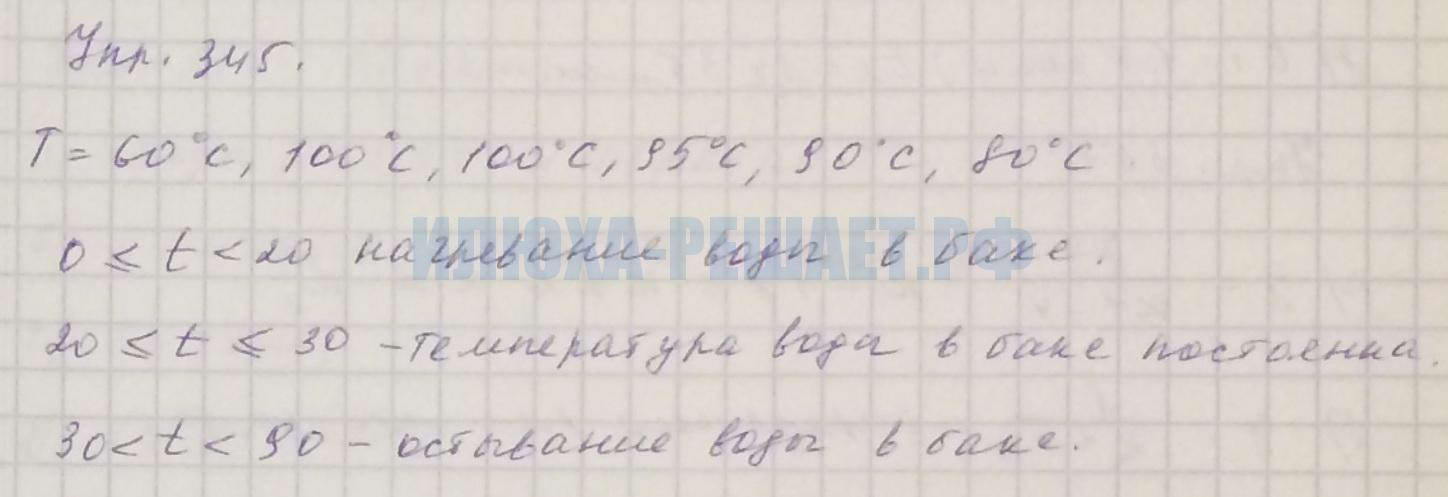 Упр. 345.
T = 60°C, 100°C, 100°C, 95°C, 90°C, 80°C
ИЛЮХА-РЕШАЕТ.РФ
0 ≤ t < 20 нагревание воды в баке.
20 ≤ t ≤ 30 – температура воды в баке постоянна.
30 < t < 90 – остывание воды в баке.